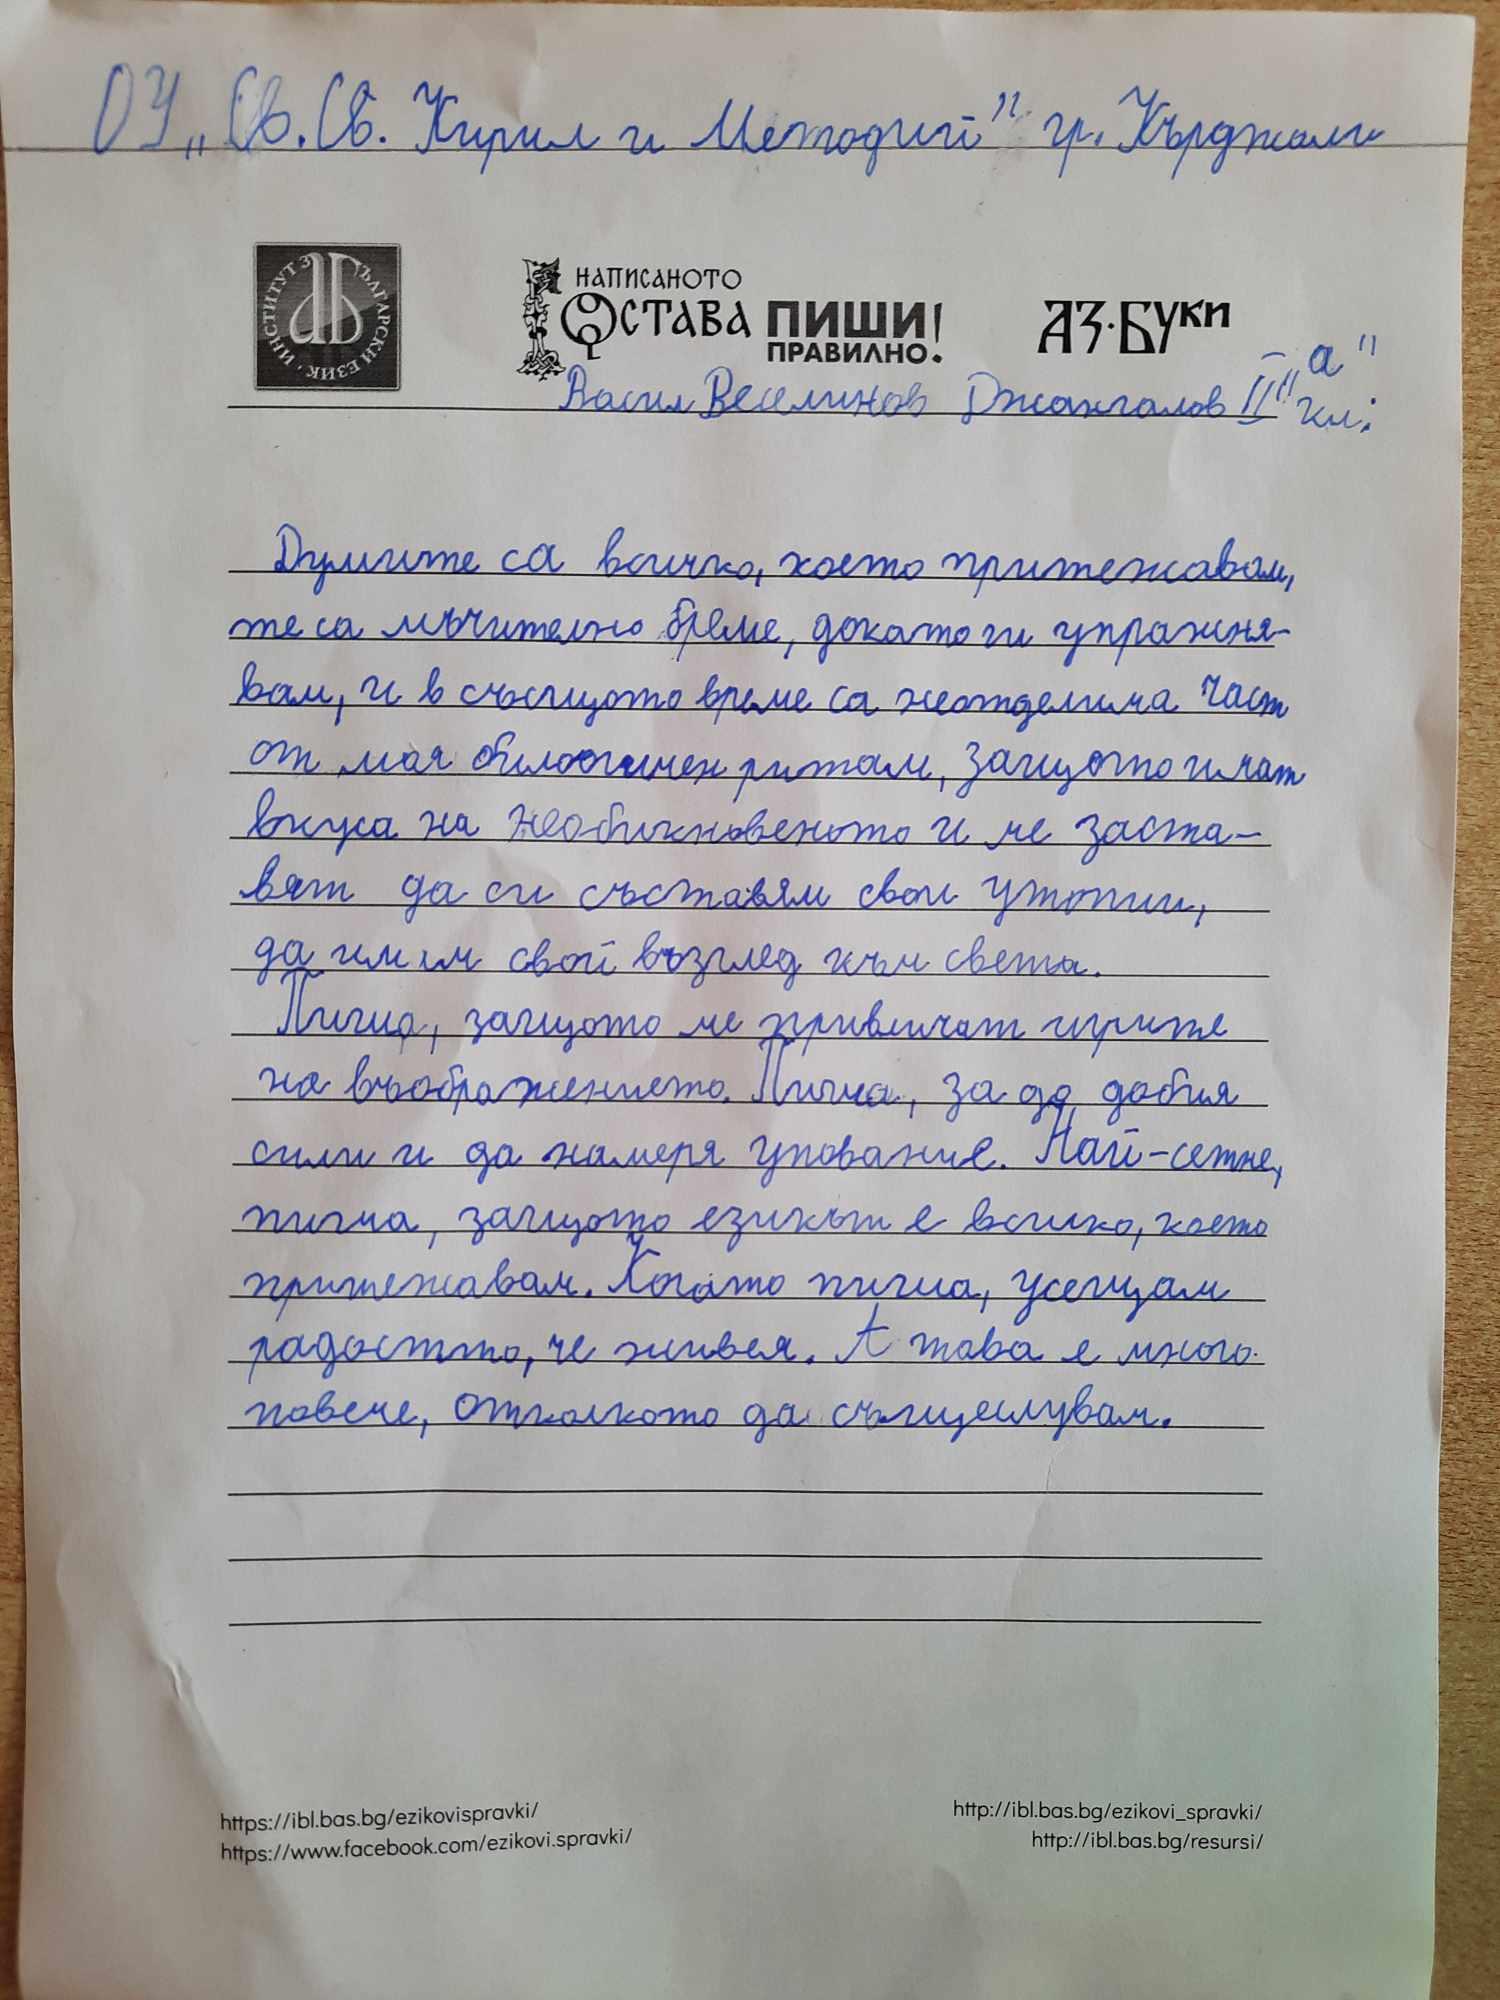 ОУ „Св. Св. Кирил и Методий" гр. Кърджали
ИНСТИТУТ ЗА БЪЛГАРСКИ ЕЗИК
НАПИСАНОТО
ОСТАВА ПИШИ
ПРАВИЛНО!
АЗ·БУКИ
Васил Веселинов Джангалов II „а" кл.
Думите са всичко, което притежавам,
те са мъчително бреме, докато ги упражня-
вам, и в същото време са неотделима част
от моя биологичен ритъм, защото имат
вкуса на необикновеното и ме заста-
вят да си съставям свои утопии,
да имам свой възглед към света.
Пиша, защото ме привличат игрите
на въображението. Пиша, за да добия
сили и да намеря упование. Най-сетне,
пиша, защото езикът е всичко, което
притежавам. Когато пиша, усещам
радостта, че живея. А това е много
повече, отколкото да съществувам.
https://ibl.bas.bg/ezikovispravki/
https://www.facebook.com/ezikovi.spravki/
http://ibl.bas.bg/ezikovi_spravki/
http://ibl.bas.bg/resursi/